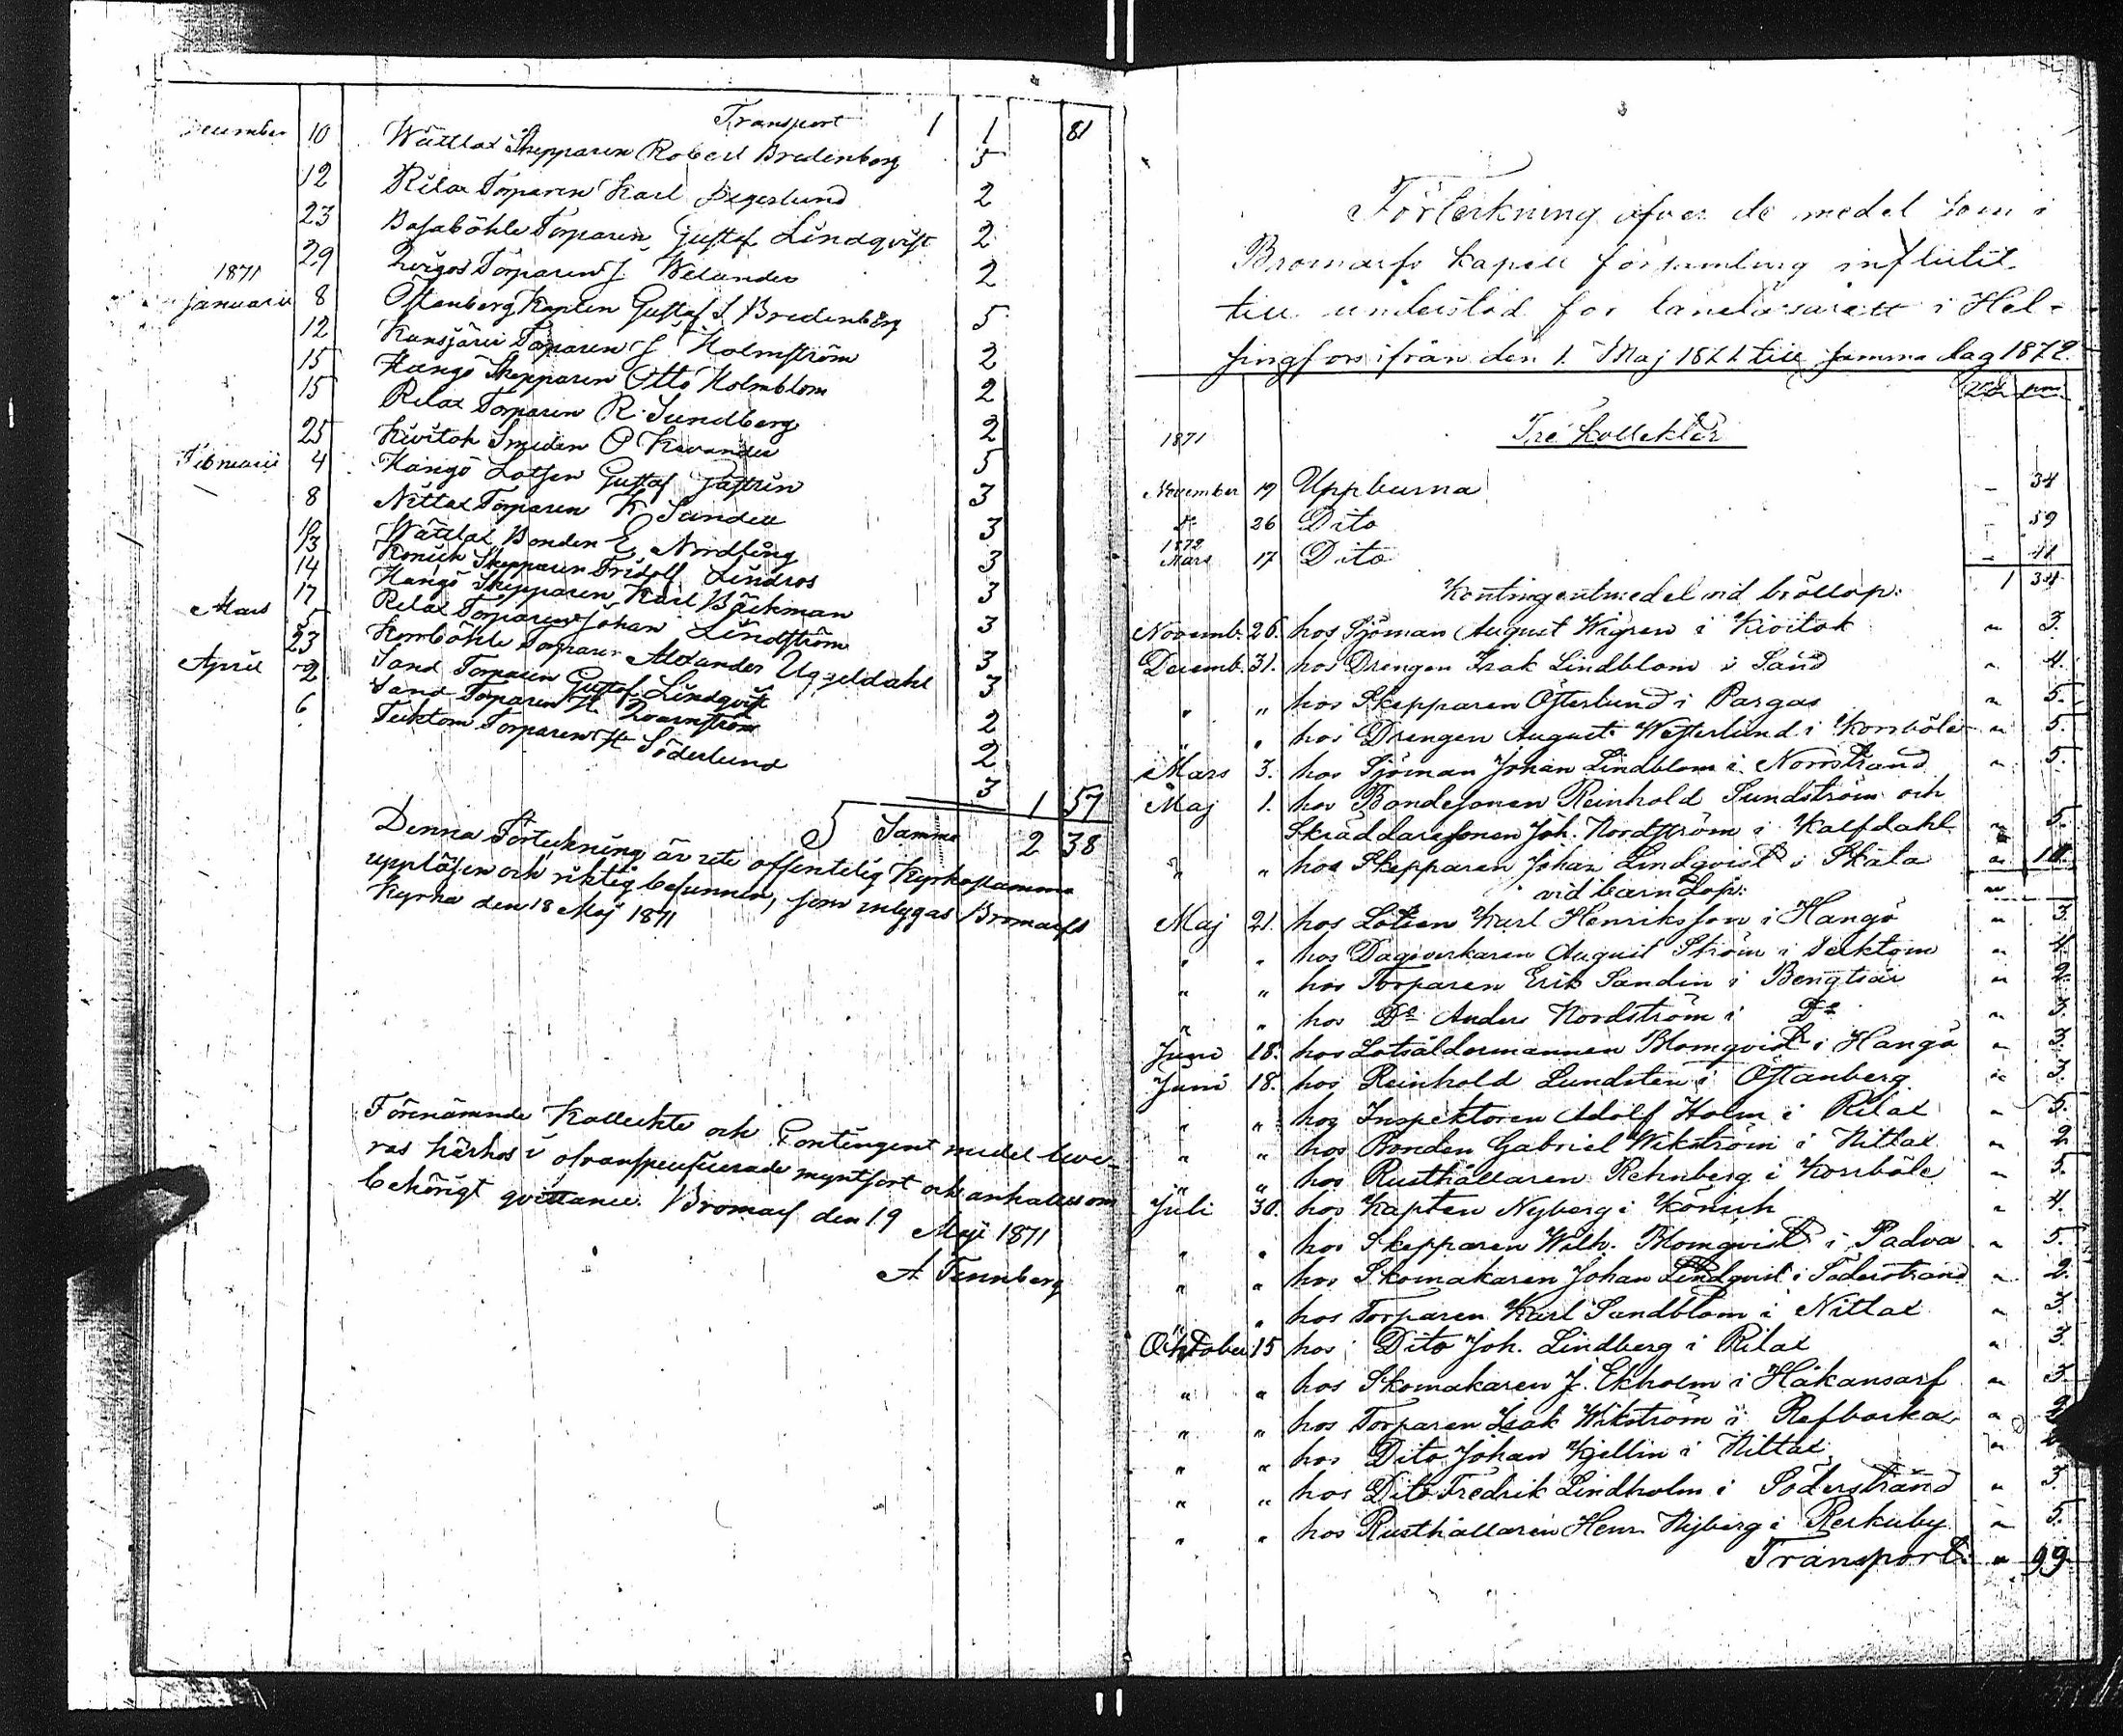 Transport 1 1 81
December 10 Wättlax Skepparen Robert Bredenberg 5
12 Rilax Torparen Karl Segerlund 2
23 Basaböhle Torparen Gustaf Lindqvist 2
29 Torparen J. Welander 2
1871
Januarii 8 Östanberg Kapten Gustaf S Bredenberg 5
12 Kansjärvi Torparen J Holmström 2
15 Hangö Skepparen Otto Holmblom 2
15 Rilax Torparen R. Sundberg 2
25 Kivitok Smeden O Kavander 5
Februarii 4 Hangö Lotsen Gustaf Gästrin 3
8 Nittlax Torparen K Sandell 3
10 Wättlax Bonden E Nordling 3
13 Könick Skepparen Fridolf Lindros 3
14 Hangö Skepparen Karl Bäckman 3
17 Rilax Torparen Johan Lindström 3
Mars 5 Korrböhle Torparen Alexander Uggeldahl 3
23 Sand Torparen Gustaf Lindqvist 2
April 2 Sand Torparen H. Qvarnström 2
6 Tecktom Torparen H Söderlund 3
1 57
Summa 2 38
Denna Förteckning är vid offentelig Kyrkostämma
uppläsen och riktig befunnen, som intygas Bromarfs
Kyrka den 18 Maj 1871
Förenämnde Kollechte och Contingent medel leve-
ras härhos i ofvanspecificerade myntsort och anhålles om
behörigt qvittance. Bromarf den 19 Maji 1871
A Tennberg
Förteckning öfver de medel som i
Bromarfs kapell församling influtit
till understöd för länelasarett i Hel-
singfors ifrån den 1. Maj 1871 till samma dag 1872.
Rub pen
1871 Tre Kollekter
November 19 Uppburna - 34
d:o 26 Dito - 59
1872
Mars 17 Dito - 41
1 34
Kontingentmedel vid bröllop:
Novemb. 26. hos Sjöman August Wigren i Kivitok " 3.
Decemb. 31. hos Drengen Isak Lindblom i Sand " 4.
" " hos Skepparen Österlund i Pargas " 5.
" " hos Drengen August Westerlund i Korrböle " 5.
Mars 3. hos Sjöman Johan Lindblom i Norrstrand " 5.
Maj 1. hos Bondesonen Reinhold Sundström och
Skräddaresonen Joh. Nordström i Kalfdahl " 5.
" " hos Skepparen Johan Lindqvist i Skåla " 10.
vid barndop:
Maj 21. hos Lotsen Karl Henriksson i Hangö " 3.
" " hos Dagsverkaren August Ström i Tecktom " 4.
" " hos Torparen Erik Sandin i Bengtsår " 2.
" " hos D:o Anders Nordström i D:o " 3.
Juni 18. hos Lotsåldermannen Blomqvist i Hangö " 3.
Juni 18. hos Reinhold Lundsten i Östanberg " 3.
" " hos Inspektoren Adolf Holm i Rilax " 5.
" " hos Bonden Gabriel Wikström i Nitlax " 2
" " hos Rusthållaren Rehnberg i Korrböle " 5.
Juli 30. hos Kapten Nyberg i Könick " 4.
" " hos Skepparen Wilh. Blomqvist i Padva " 5.
" " hos Skomakaren Johan Lindqvist i Söderstrand " 2.
" " hos Torparen Karl Sundblom i Nittlax " 3.
Oktober 15 hos Dito Joh. Lindberg i Rilax " 3.
" " hos Skomakaren J. Ekholm i Håkansarf " 3.
" " hos Torparen Isak Wikström i Refbacka " 2
" " hos Dito Johan Kjellin i Nittlax "
" " hos Dito Fredrik Lindholm i Söderstrand " 3.
" " hos Rusthållaren Henr. Nyberg i Rerkuby " 5.
Transport: " 99